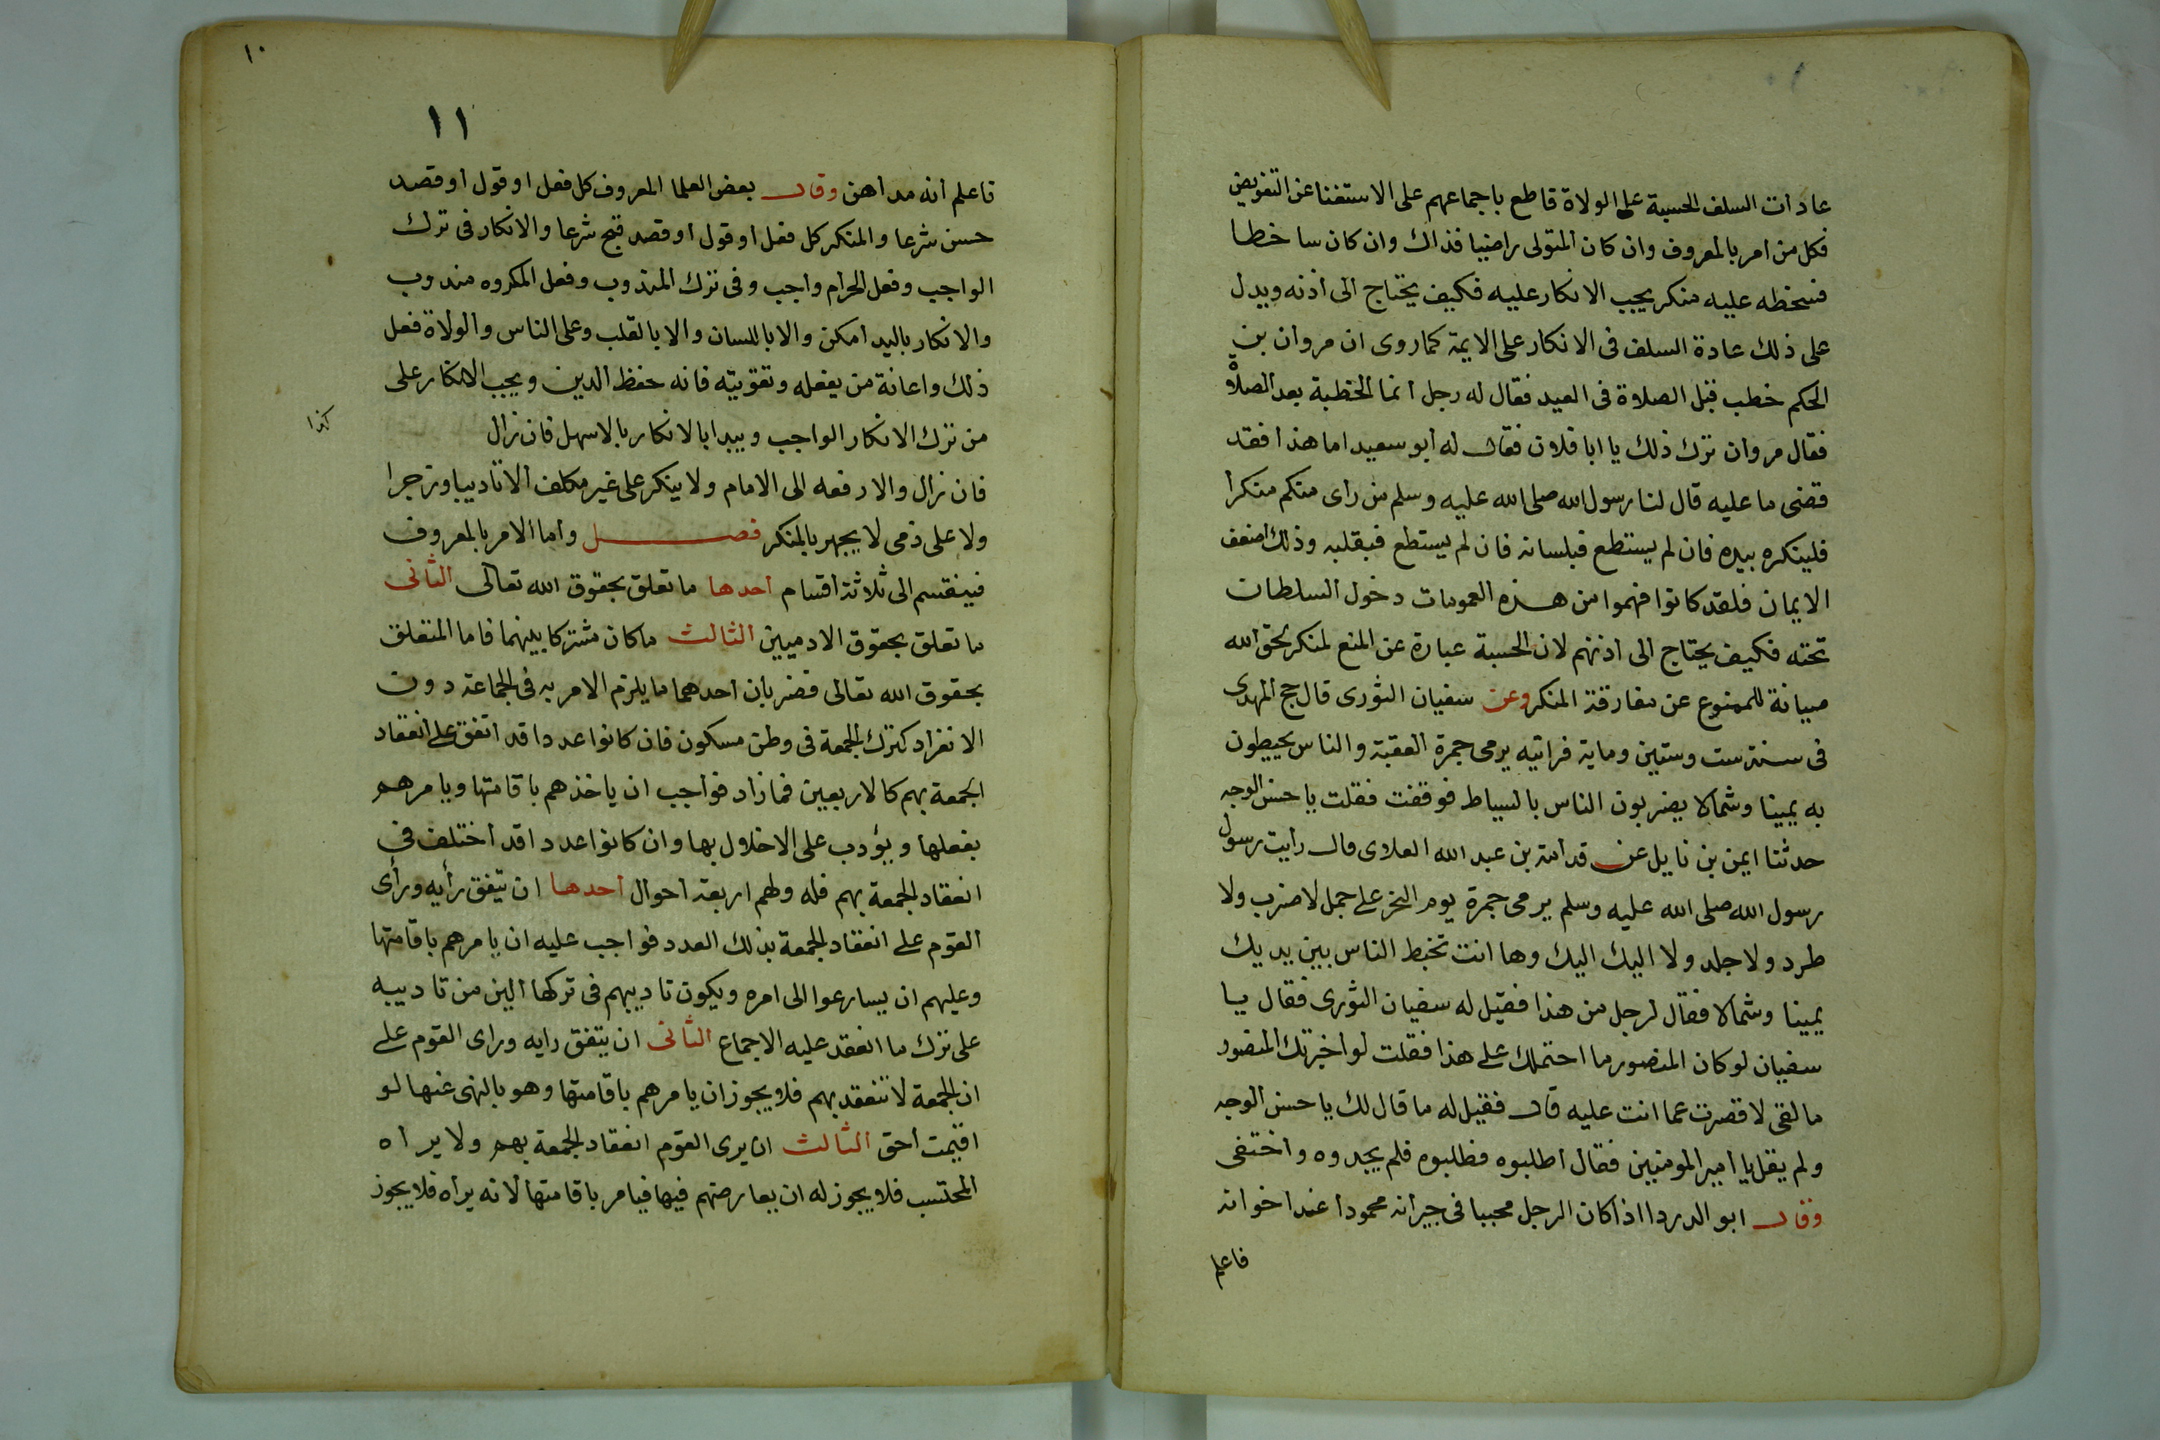 عادات السلف الحسبة على الولاة قاطع باجماعهم على الاستغنا عن التفويض
فكل من امر بالمعروف وان كان المتولى راضيا فذاك وان كان ساخطا
فسخطه عليه منكر يجب الانكار عليه فكيف يحتاج الى اذنه ويدل
على ذلك عادة السلف فى الانكار على الايمة كما روى ان مروان بن
الحكم خطب قبل الصلاة فى العيد فقال له رجل انما الخطبة بعد الصلاة
فقال مروان ترك ذلك يا ابا فلان فقال له ابو سعيد اما هذا فقد
قضى ما عليه قال لنا رسول الله صلى الله عليه وسلم من راى منكم منكرا
فلينكره بيده فان لم يستطع فبلسانه فان لم يستطع فبقلبه وذلك اضعف
الايمان فلقد كانوا فهموا من هذه العمومات دخول السلطان
تحته فكيف يحتاج الى اذنهم لان الحسبة عبارة عن المنع لمنكر بحق الله
صيانة للممنوع عن مفارقة المنكر وعن سفيان الثورى قال حج المهدى
فى سنة ست وستين وماية فراتيه يرمى جمرة العقبة والناس يحيطون
به يمينا وشمالا يضربون الناس بالسياط فوقفت فقلت يا حسن الوجه
حدثنا ايمن بن نايل عن قدامة بن عبد الله العلاوى قال رايت رسول
رسول الله صلى الله عليه وسلم يرمى جمرة يوم النحر على جمل لا ضرب ولا
طرد ولا جلد ولا اليك اليك وها انت تخبط الناس بين يديك
يمينا وشمالا فقال لرجل من هذا فقيل له سفيان الثورى فقال يا
سفيان لو كان المنصور ما احتملك على هذا فقلت لو اخبرتك المنصور
ما لقى لا قصرت عما انت عليه قال فقيل له ما قال لك يا حسن الوجه
ولم يقل يا امير المومنين فقال اطلبوه فطلبوه فلم يجدوه واختفى
وقال ابو الدردا اذا كان الرجل محببا فى جيرانه محمودا عند اخوانه
فاعلم
١٠
١١
فاعلم انه مداهن وقال بعض العلما المعروف كل فعل او قول او قصد
حسن شرعا والمنكر كل فعل او قول او قصد قبح شرعا والانكار فى ترك
الواجب وفعل الحرام واجب وفى ترك المندوب وفعل المكروه مندوب
والانكار باليد امكن والا باللسان والا بالقلب وعلى الناس والولاة فعل
ذلك واعانة من يفعله وتقويته فانه حفظ الدين ويجب الانكار على
من ترك الانكار الواجب ويبدا بالانكار بالاسهل فان زال
كذا
فان زال والا رفعه الى الامام ولا ينكر على غير مكلف الا تاديبا وزجرا
ولا على ذمى لا يجهر بالمنكر فصل واما الامر بالمعروف
فينقسم الى ثلاثة اقسام احدها ما تعلق بحقوق الله تعالى الثانى
ما تعلق بحقوق الادميين الثالث ما كان مشتركا بينهما فاما المتعلق
بحقوق الله تعالى فضربان احدهما ما يلزم الامر به فى الجماعة دون
الانفراد كترك الجمعة فى وطن مسكون فان كانوا عددا قد اتفق على انعقاد
الجمعة بهم كالاربعين فما زاد فواجب ان ياخذهم باقامتها ويامرهم
بفعلها ويؤدب على الاخلال بها وان كانوا عددا قد اختلف فى
انعقاد الجمعة بهم فله ولهم اربعة احوال احدها ان يتفق رأيه ورأى
القوم على انعقاد الجمعة بذلك العدد فواجب عليه ان يامرهم باقامتها
وعليهم ان يسارعوا الى امره ويكون تاديبهم فى تركها الين من تاديبه
على ترك ما انعقد عليه الاجماع الثانى ان يتفق رايه وراى القوم على
ان الجمعة لا تنعقد بهم فلا يجوز ان يامرهم باقامتها وهو بالنهى عنها لو
اقيمت احق الثالث ان يرى القوم انعقاد الجمعة بهم ولا يراه
المحتسب فلا يجوز له ان يعارضهم فيها فيامر باقامتها لانه يراه فلا يجوز